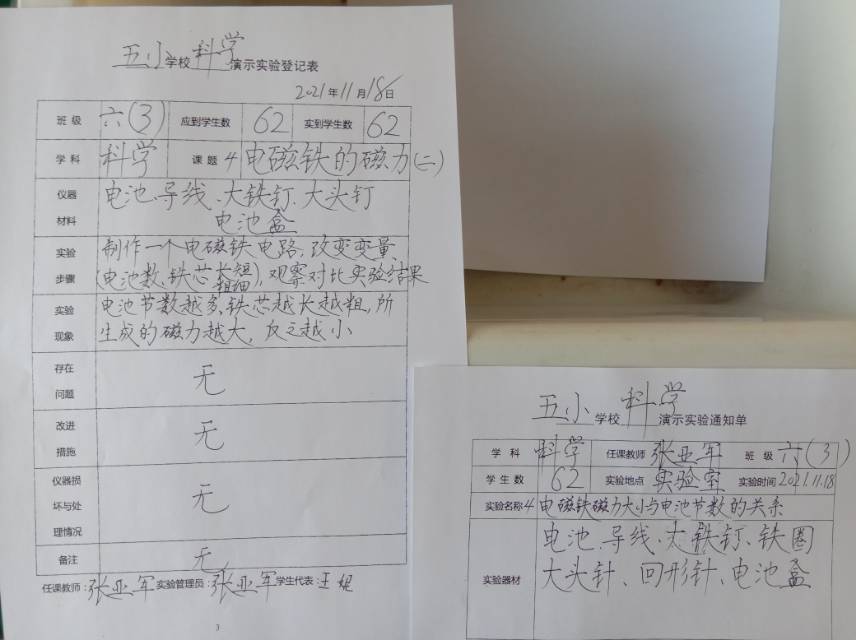 五小学校科学演示实验登记表
2021年11月18日
班级 六(3) 应到学生数 62 实到学生数 62
学科 科学 课题 4 电磁铁的磁力(二)
仪器材料 电池、导线、大铁钉、大头钉
电池盒
实验步骤 制作一个电磁铁电路,改变变量,
(电池数、铁芯长短粗细),观察对比实验结果
实验现象 电池节数越多、铁芯越长越粗,所
生成的磁力越大,反之越小
存在问题 无
改进措施 无
仪器损坏与处理情况 无
备注 无
任课教师:张亚军 实验管理员:张亚军 学生代表:王焜
3
五小学校科学演示实验通知单
学科 科学 任课教师 张亚军 班级 六(3)
学生数 62 实验地点 实验室 实验时间 2021.11.18
实验名称 4 电磁铁磁力大小与电池节数的关系
实验器材 电池、导线、大铁钉、铁圈
大头针、回形针、电池盒